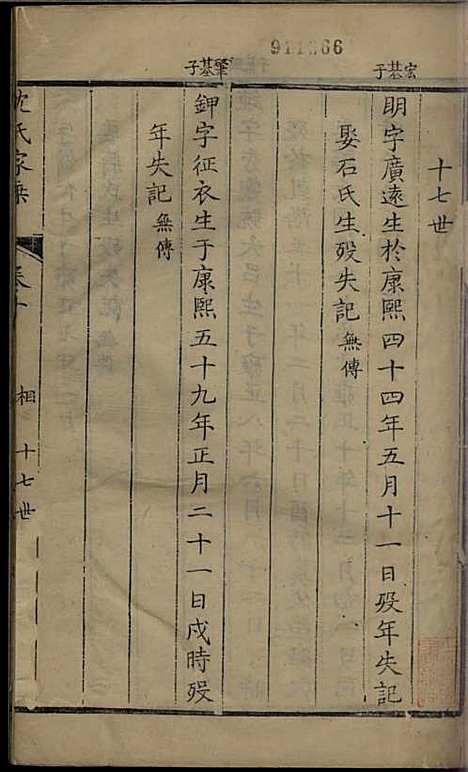 911266
十七世
宏基子
明字廣遠生於康熙四十四年五月十一日歿年失記
娶石氏生歿失記無傳
肇基子
鉀字征衣生于康熙五十九年正月二十一日戍時歿
年失記無傳
沈氏家乘
卷十
相
十七世